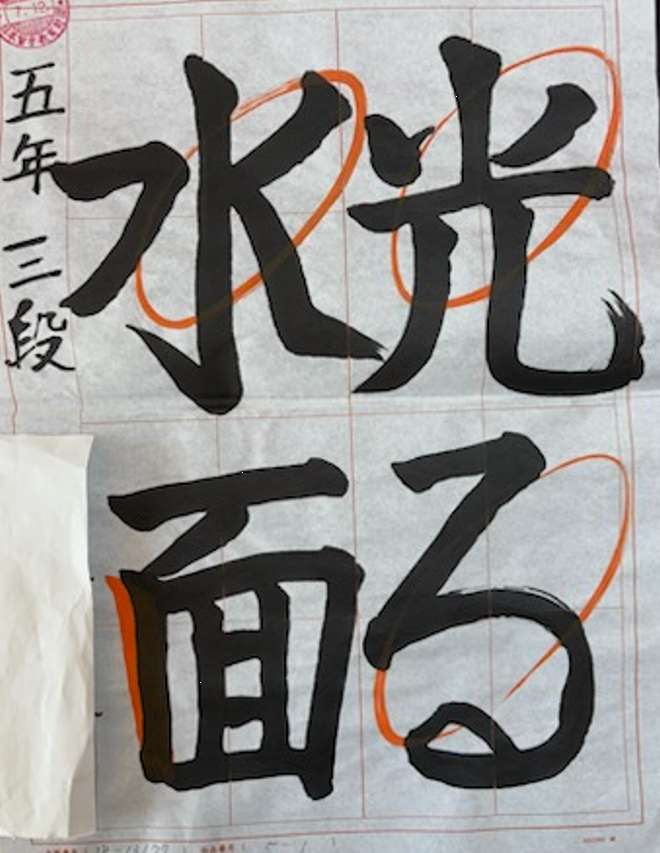 光る
水面
五年 三段